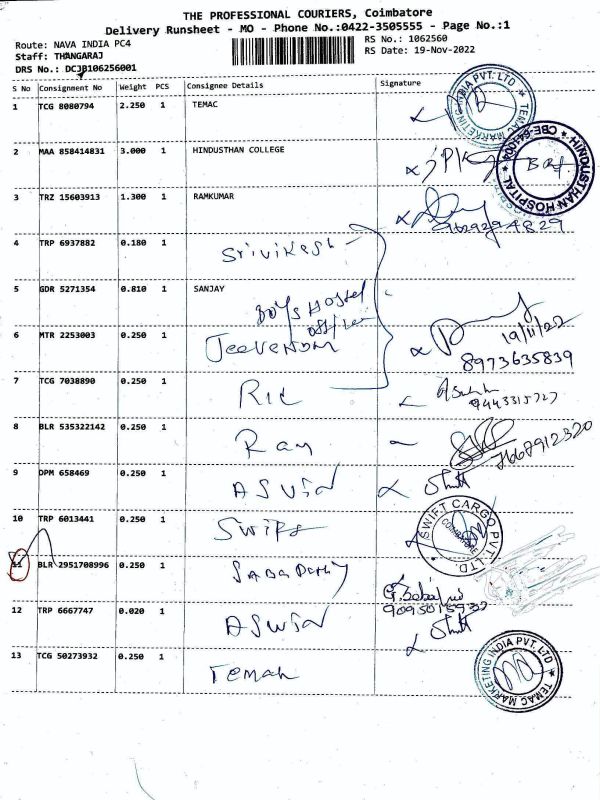 THE PROFESSIONAL COURIERS, Coimbatore
Delivery Runsheet - MO - Phone No.:0422-3505555 - Page No.:1
Route: NAVA INDIA PC4
RS No.: 1062560
Staff: THANGARAJ
RS Date: 19-Nov-2022
DRS No.: DCJB106256001
S No Consignment No Weight PCS Consignee Details Signature
1 TCG 8080794 2.250 1 TEMAC
TEMAC MARKETING INDIA PVT. LTD
2 MAA 858414831 3.000 1 HINDUSTHAN COLLEGE
HINDUSTHAN HOSPITAL
3 TRZ 15603913 1.300 1 RAMKUMAR
4 TRP 6937882 0.180 1 Srivikesh
5 GDR 5271354 0.810 1 SANJAY
Boys Hostel
19/11/22
6 MTR 2253003 0.250 1
8973635839
7 TCG 7038890 0.250 1
8 BLR 535322142 0.250 1 Ram
9 DPM 658469 0.250 1 Aswin
10 TRP 6013441 0.250 1 Swift
SWIFT CARGO PVT. LTD.
COIMBATORE
11 BLR 2951708996 0.250 1
12 TRP 6667747 0.020 1 Aswin
13 TCG 50273932 0.250 1
TEMAC MARKETING INDIA PVT. LTD